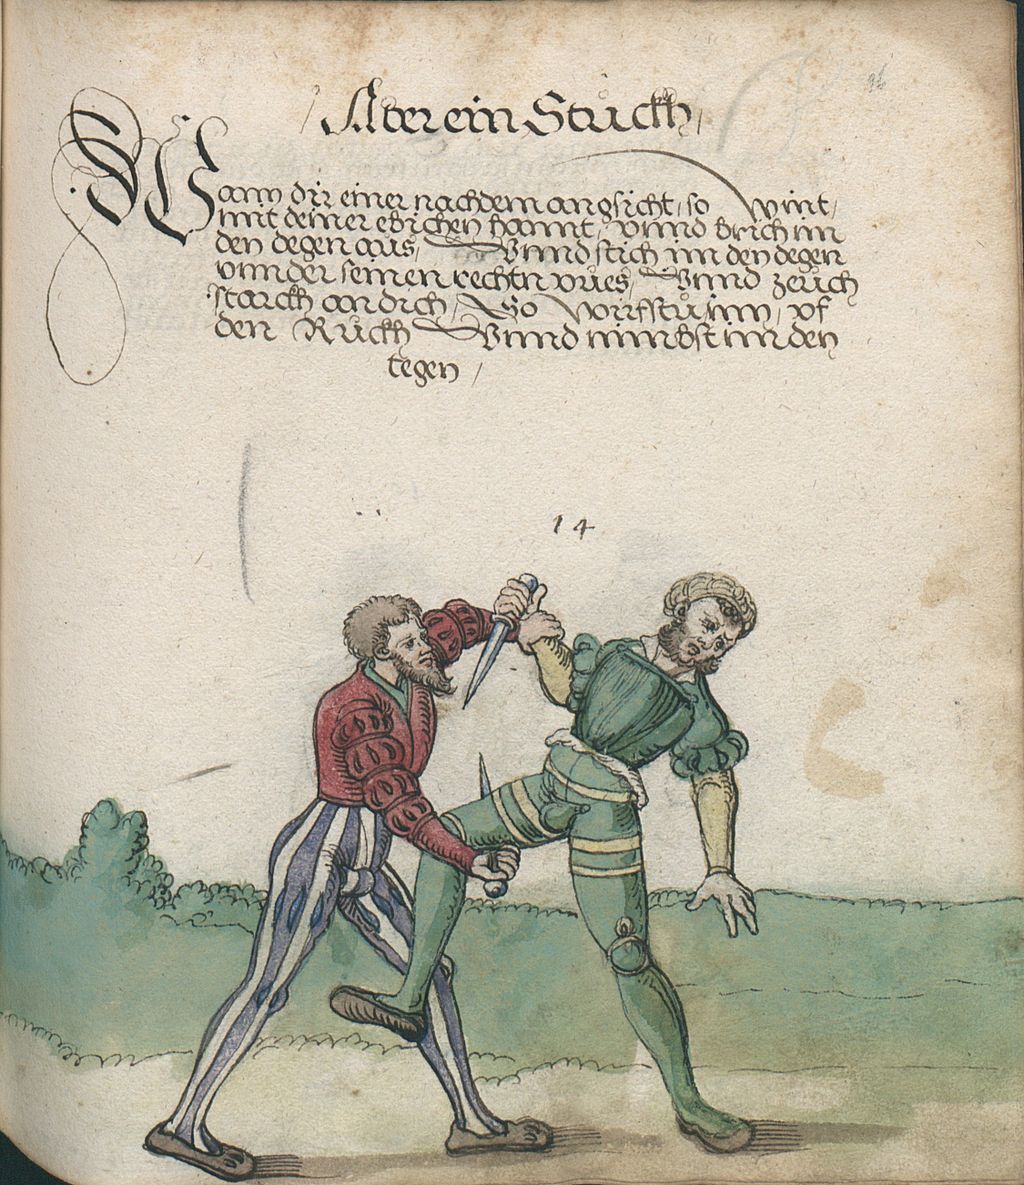 96
Aber ein Stuckh
Wann dir einer nach dem angsicht, so wint,
mit deiner ebichen hannt, vnnd brich im
den degen aus, Vnnd stich im den degen
vnnder seinen rechtn vues, Vnnd zeuch
starckh an dich, So wirfstu inn, vf
den Ruckh Vnnd nimbst im den
tegen,
14